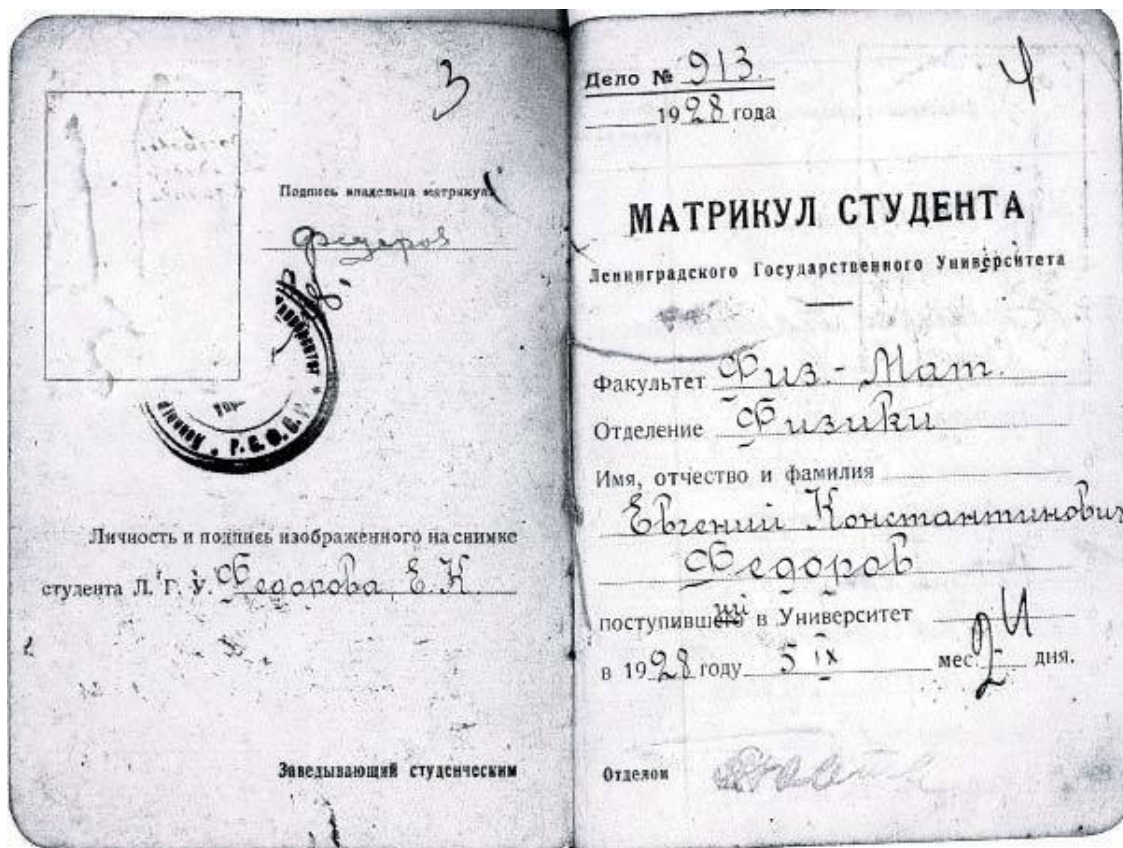 3
Подпись владельца матрикула
Федоров
Р.С.Ф.С.Р.
Личность и подпись изображенного на снимке
студента Л. Г. У. Федорова, Е. К.
Заведывающий студенческим
Дело № 913.
1928 года
МАТРИКУЛ СТУДЕНТА
Ленинградского Государственного Университета
Факультет Физ.-Мат.
Отделение Физики
Имя, отчество и фамилия
Евгений Константинович
Федоров
поступивший в Университет
в 1928 году 5 IX мес. дня.
Отделом